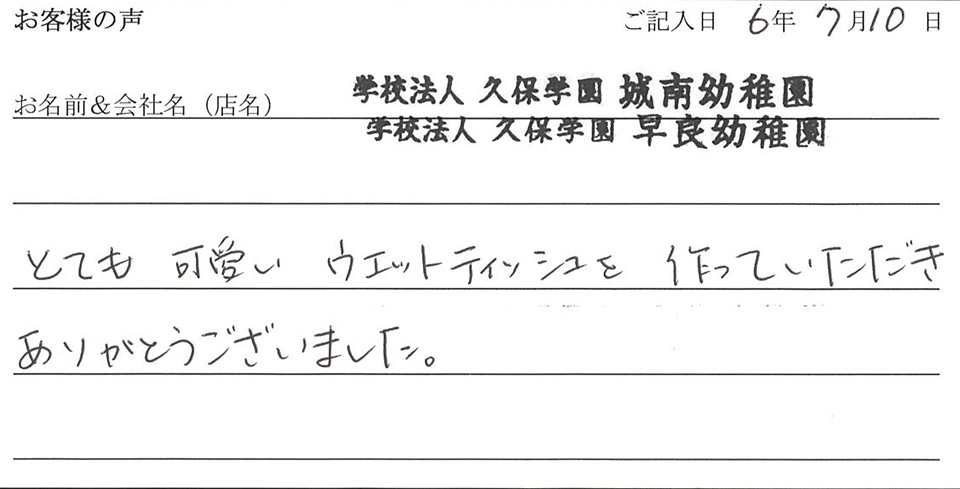 お客様の声 ご記入日 6年 7月10日
お名前&会社名（店名） 学校法人 久保学園 城南幼稚園
学校法人 久保学園 早良幼稚園
とても 可愛い ウエットティッシュを 作っていただき
ありがとうございました。